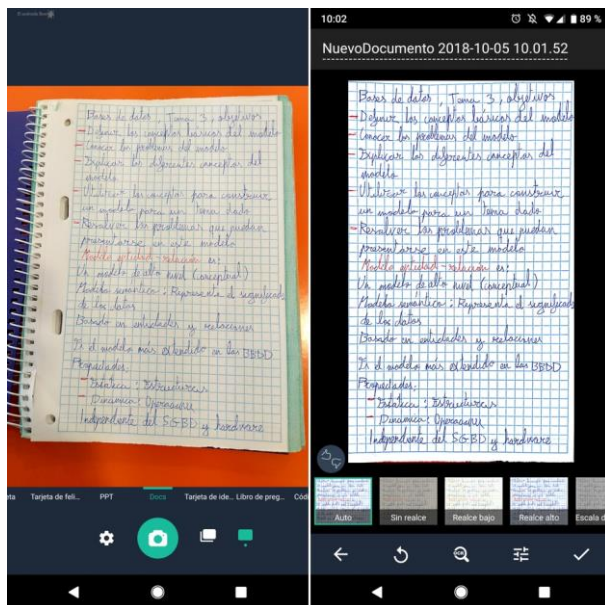 Bases de datos, Tema 3, objetivos
- Definir los conceptos básicos del modelo
- Conocer los problemas del modelo
- Explicar los diferentes conceptos del
modelo
- Utilizar los conceptos para construir
un modelo para un tema dado
- Resolver los problemas que puedan
presentarse en este modelo
Modelo entidad-relación es:
Un modelo de alto nivel (conceptual)
Modelo semántico: Representa el significado
de los datos
Basado en entidades y relaciones
Es el modelo más extendido en las BBDD
Propiedades:
- Estática: Estructuras
- Dinámica: Operaciones
Independiente del SGBD y hardware
Tarjeta de feli...
PPT
Docs
Tarjeta de ide...
Libro de preg...
Códi
10:02
89 %
NuevoDocumento 2018-10-05 10.01.52
Bases de datos, Tema 3, objetivos
- Definir los conceptos básicos del modelo
- Conocer los problemas del modelo
- Explicar los diferentes conceptos del
modelo
- Utilizar los conceptos para construir
un modelo para un tema dado
- Resolver los problemas que puedan
presentarse en este modelo
Modelo entidad-relación es:
Un modelo de alto nivel (conceptual)
Modelo semántico: Representa el significado
de los datos
Basado en entidades y relaciones
Es el modelo más extendido en las BBDD
Propiedades:
- Estática: Estructuras
- Dinámica: Operaciones
Independiente del SGBD y hardware
Auto
Sin realce
Realce bajo
Realce alto
Escala d